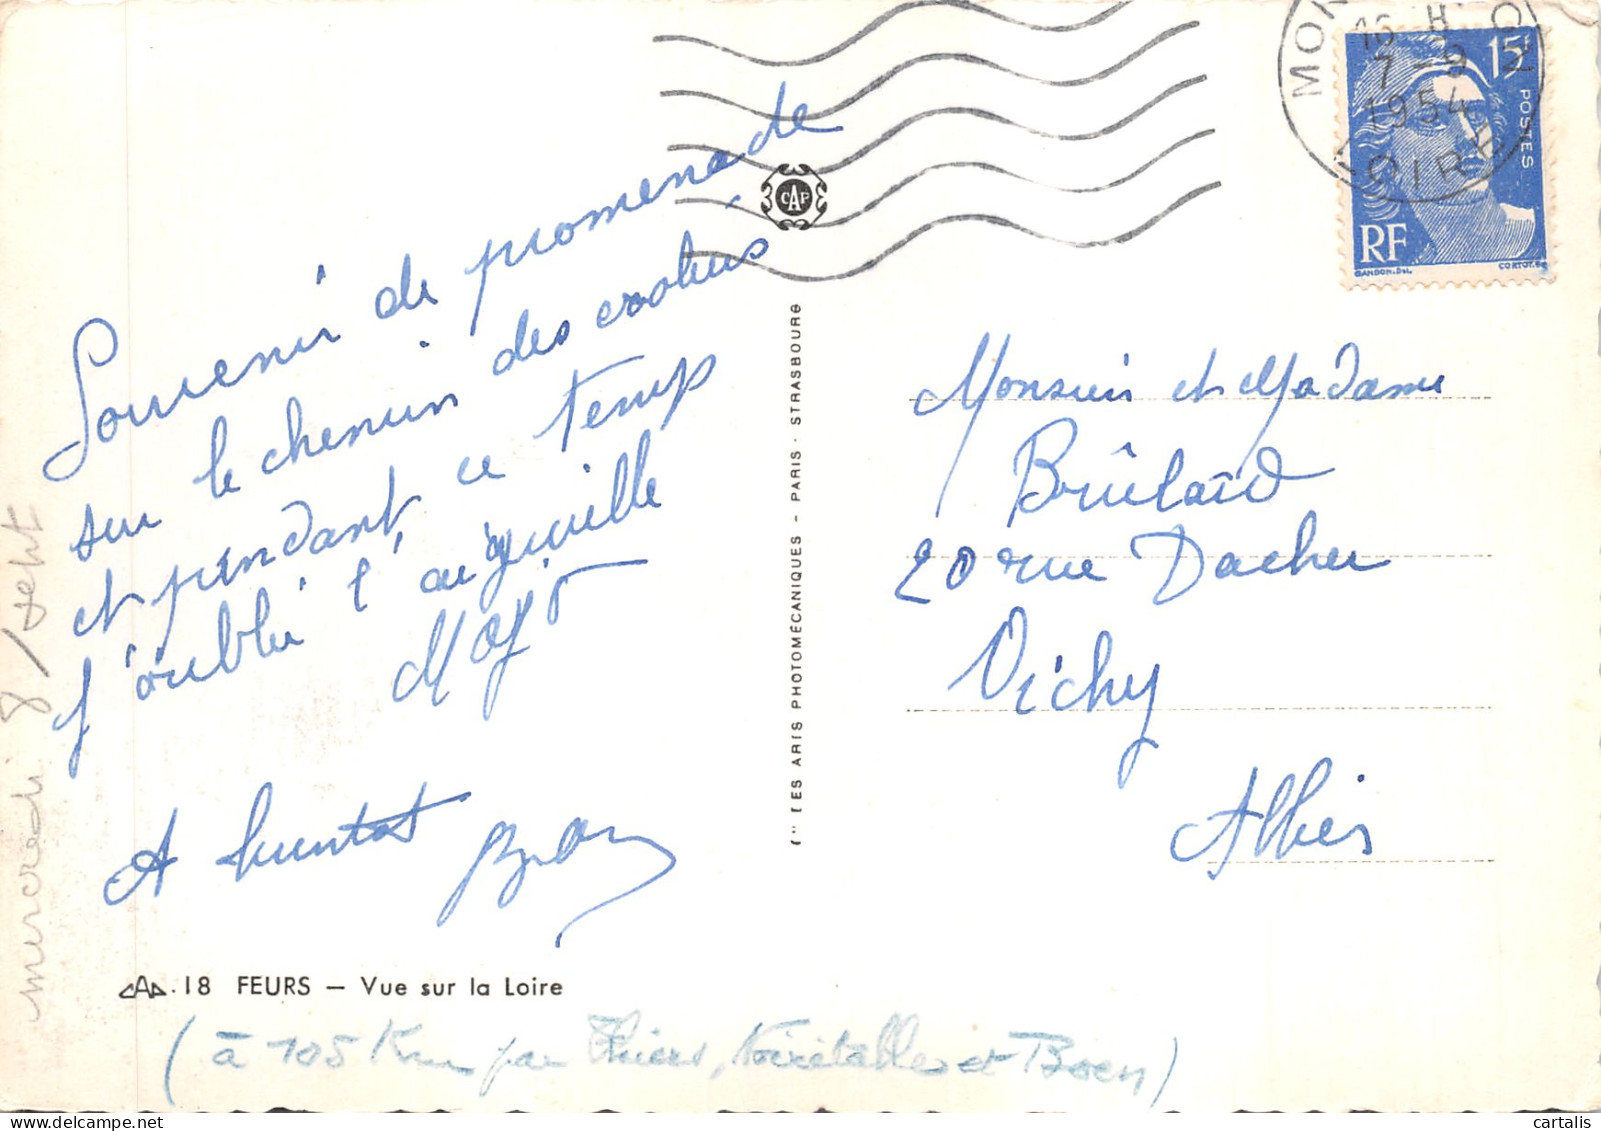 Souvenir de promenade
sur le chemin des
et pendant ce temps
j'oublie l'aiguille
A bientot
mercredi 8 / sept
18 FEURS — Vue sur la Loire
(à 105 Km par Thiers, Noirétable et Boen)
CAP
Cie DES ARTS PHOTOMÉCANIQUES - PARIS - STRASBOURG
16 H
7 - 9
1954
LOIRE
15F
POSTES
RF
GANDON.Del.
CORTOT.
Monsieur et Madame
Brûlard
20 rue Dacher
Vichy
Allier
cartalis